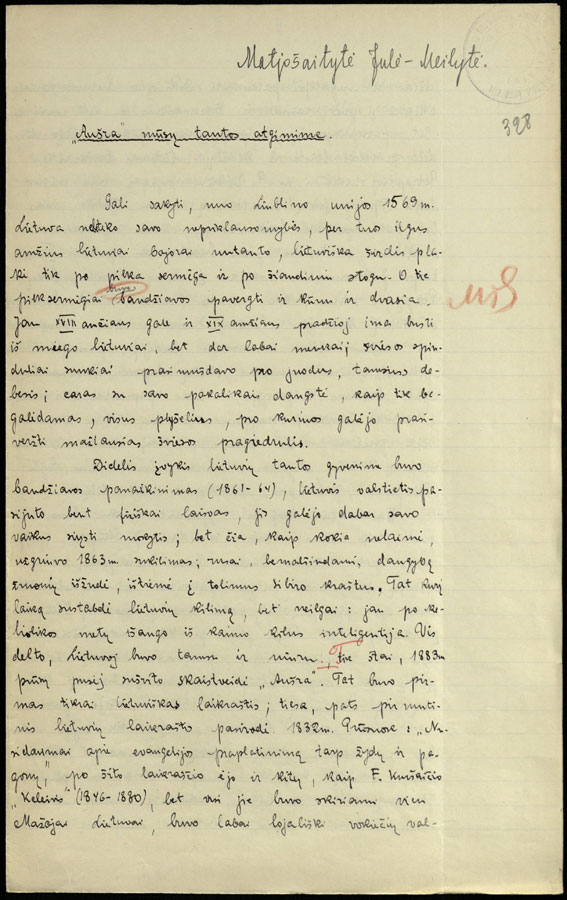 Matjošaitytė Julė - Meilytė.
398
„Aušra" mūsų tautos atgimime.
Gali sakyti, nuo Liublino unijos 1569 m.
Lietuva neteko savo nepriklausomybės, per tuos ilgus
amžius lietuviai bajorai nutauto, lietuviška širdis pla-
kė tik po pilka sermėga ir po šiaudiniu stogu. O tie
pilksermėgiai buvo baudžiavos pavergti ir kūnu ir dvasia.
Jau XVIII amžiaus gale ir XIX amžiaus pradžioj ima busti
iš miego lietuviai, bet dar labai menkai; šviesos spin-
duliai sunkiai prasimušdavo pro juodus, tamsius de-
besis; caras su savo pakalikais dangstė, kaip tik be-
galėdamas, visus plyšelius, pro kuriuos galėjo prasi-
veržti mažiausias šviesos pragiedrulis.
Didelis įvykis lietuvių tautos gyvenime buvo
baudžiavos panaikinimas (1861-64), lietuvis valstietis pa-
sijuto bent fiziškai laisvas, jis galėjo dabar savo
vaikus siųsti mokytis; bet čia, kaip kokia nelaimė,
užgriuvo 1863 m. sukilimas; rusai, bemalšindami, daugybę
žmonių išžudė, ištrėmė į tolimus Sibiro kraštus. Tat kurį
laiką sustabdė lietuvių kilimą, bet neilgai: jau po ke-
liolikos metų išaugo iš kaimo kilus inteligentija. Vis
dėlto, Lietuvoj buvo tamsu ir niūru. Tik štai, 1883 m
prūsų pusėj sušvito skaistveidė „Aušra". Tat buvo pir-
mas tikrai lietuviškas laikraštis; tiesa, pats pirmuti-
nis lietuvių laikraštis pasirodė 1832 m. Prūsuose: „Nu-
sidavimai apie evangelijos praplatinimą tarp žydų ir pa-
gonų", po šito laikraščio ėjo ir kitų, kaip F. Kuršaičio
„Keleivis" (1846-1880), bet visi jie buvo skiriami vien
Mažajai Lietuvai, buvo labai lojališki vokiečių val-